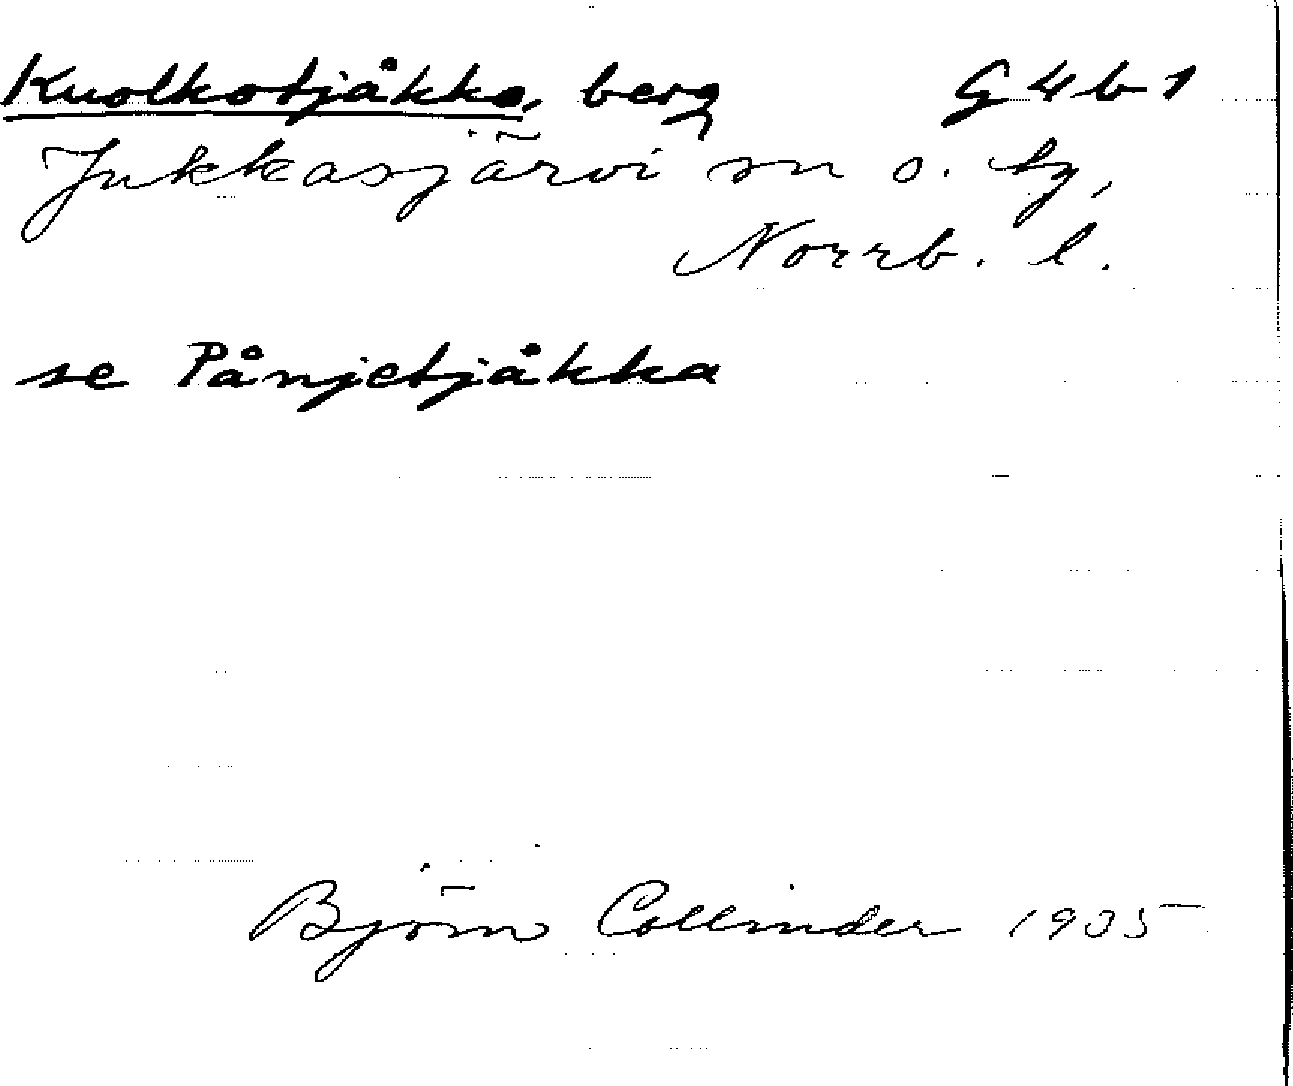 Kuolkotjåkka, berg G4b1
Jukkasjärvi sn o. tg,
Norrb. l.
se Pånjetjåkka
Björn Collinder 1935